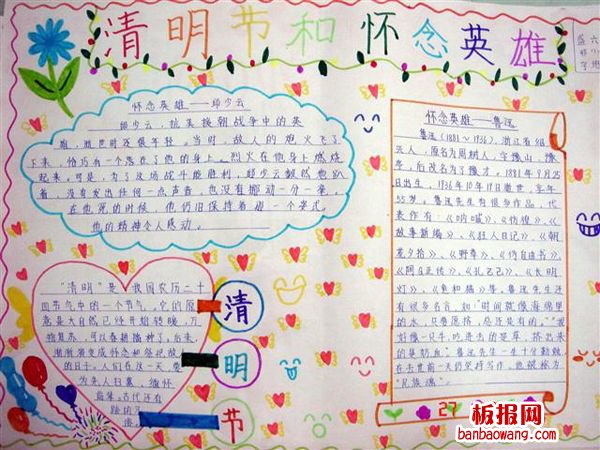 清明节和怀念英雄
怀念英雄——邱少云
邱少云,抗美援朝战争中的英
雄,逝世时还很年轻。当时,敌人的炮火飞了
下来,恰巧有一个落在了他的身上。烈火在他身上燃烧
起来,可是,为了这场战斗能胜利,邱少云毅然地趴
着,没有发出任何一点声音,也没有挪动一分一毫,
在他死的时候,他仍旧保持着趴一个姿式。
他的精神令人感动。
怀念英雄——鲁迅
鲁迅(1881~1936),浙江省绍
兴人,原名为周树人,字豫山,豫
亭,后改名为了豫才。1881年9月25
日出生,1936年10月19日逝世,享年
55岁。鲁迅先生有很多作品,代
表作有:《呐喊》、《彷徨》、《
故事新编》、《狂人日记》、《朝
花夕拾》、《野草》、《伪自由书》、
《阿Q正传》、《孔乙己》、《长明
灯》、《兔和猫》等,鲁迅先生还
有很多名言,如"时间就像海绵里
的水,只要愿挤,总还是有的。""我
好像一只牛,吃进去的是草,挤出来
的是奶血"鲁迅先生一生十分勤奋,
在去世前一天仍坚持写作,他被称为
"民族魂"。
"清明"是我国农历二十
四节气中的一个节气,它的原
意是大自然已经开始转暖,万
物复苏,可以春耕播种了。后来,
渐渐演变成怀念和祭祀故
的日子。人们在这一天,要
为先人扫墓,缅怀
古代还有
清
明
节
27
板报网
banbaowang.com